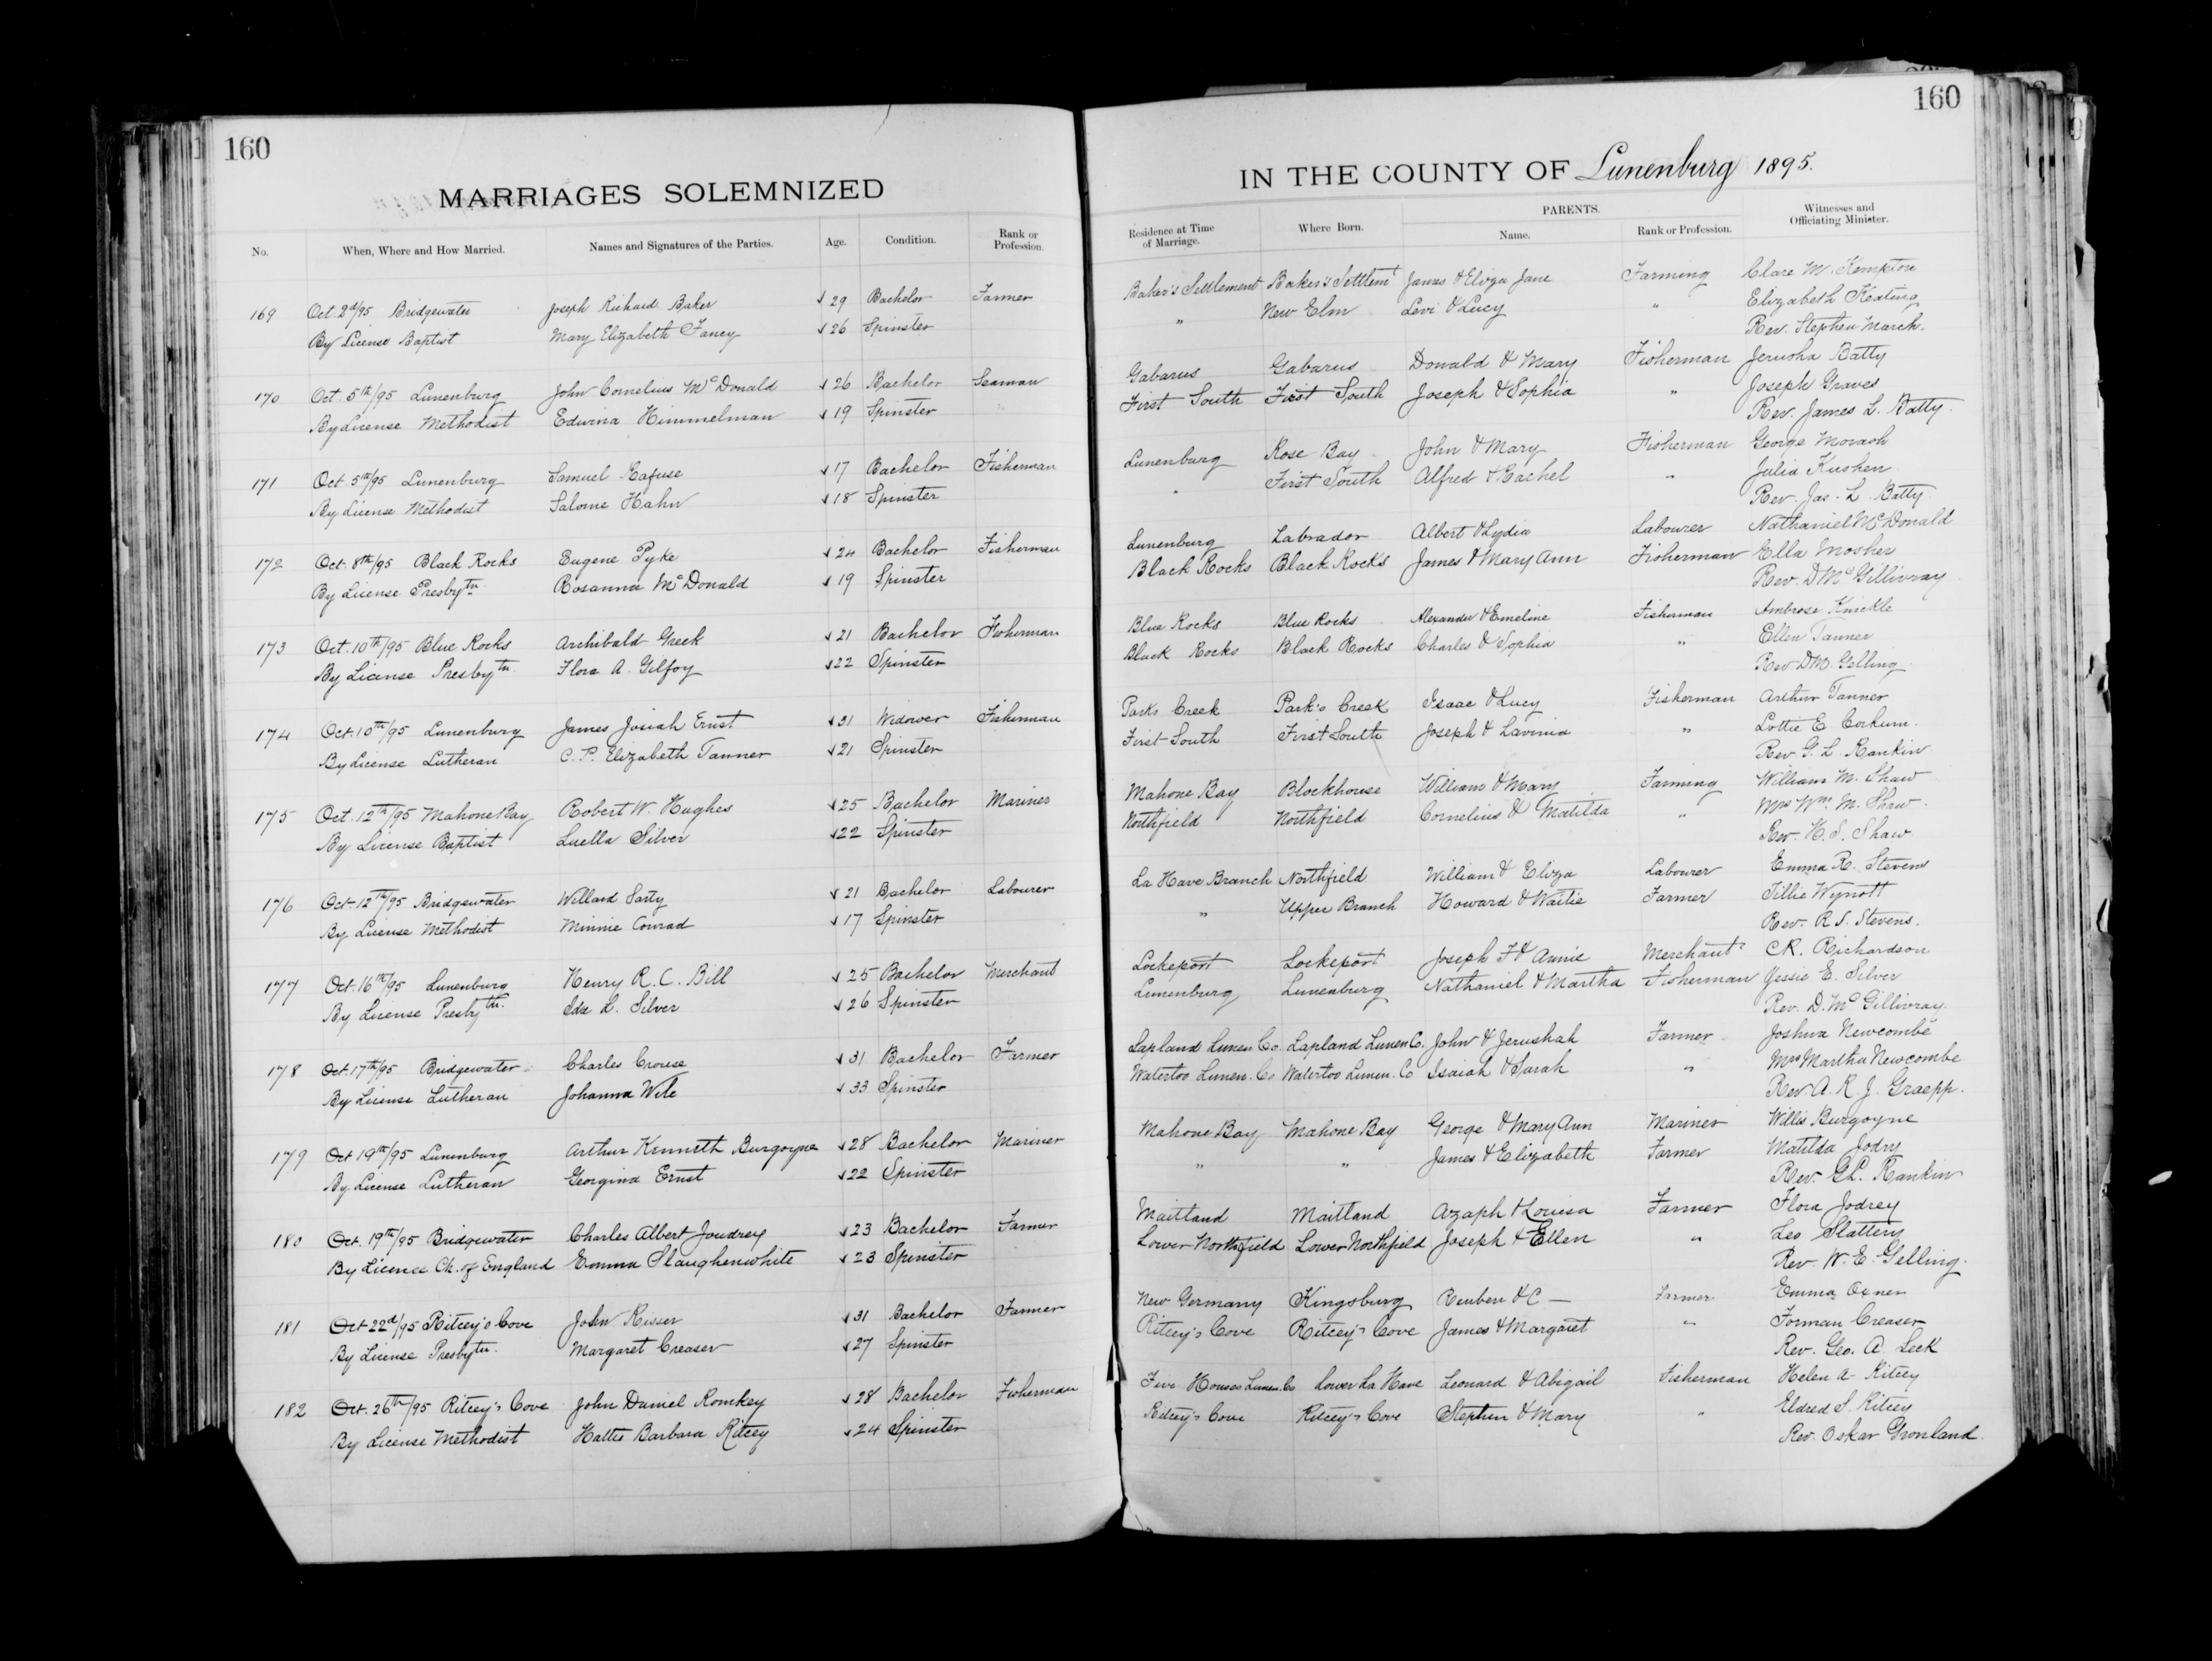 160
MARRIAGES SOLEMNIZED
No. When, Where and How Married. Names and Signatures of the Parties. Age. Condition. Rank or Profession.
169 Oct. 2d/95 Bridgewater Joseph Richard Baker 29 Bachelor Farmer
By License Baptist Mary Elizabeth Fancy 26 Spinster
170 Oct. 5th/95 Lunenburg John Cornelius McDonald 26 Bachelor Seaman
By License Methodist Edwina Himmelman 19 Spinster
171 Oct. 5th/95 Lunenburg Samuel Rafuse 17 Bachelor Fisherman
By License Methodist Salome Hahn 18 Spinster
172 Oct. 8th/95 Black Rocks Eugene Pyke 24 Bachelor Fisherman
By License Presbytn. Rosanna McDonald 19 Spinster
173 Oct. 10th/95 Blue Rocks Archibald Greek 21 Bachelor Fisherman
By License Presbytn. Flora A. Gilfoy 22 Spinster
174 Oct. 10th/95 Lunenburg James Josiah Ernst 31 Widower Fisherman
By License Lutheran C. P. Elizabeth Tanner 21 Spinster
175 Oct. 12th/95 Mahone Bay Robert W. Hughes 25 Bachelor Mariner
By License Baptist Luella Silver 22 Spinster
176 Oct. 12th/95 Bridgewater Willard Sarty 21 Bachelor Labourer
By License Methodist Minnie Conrad 17 Spinster
177 Oct. 16th/95 Lunenburg Henry R. C. Bill 25 Bachelor Merchant
By License Presbytn. Ida L. Silver 26 Spinster
178 Oct. 17th/95 Bridgewater Charles Crouse 31 Bachelor Farmer
By License Lutheran Johanna Wile 33 Spinster
179 Oct 19th/95 Lunenburg Arthur Kenneth Burgoyne 28 Bachelor Mariner
By License Lutheran Georgina Ernst 22 Spinster
180 Oct. 19th/95 Bridgewater Charles Albert Joudrey 23 Bachelor Farmer
By License Ch. of England Emma Slaughenwhite 23 Spinster
181 Oct 22d/95 Ritcey's Cove John Risser 31 Bachelor Farmer
By License Presbytn. Margaret Creaser 27 Spinster
182 Oct. 26th/95 Ritcey's Cove John Daniel Romkey 28 Bachelor Fisherman
By License Methodist Hattie Barbara Ritcey 24 Spinster
160
IN THE COUNTY OF Lunenburg 1895.
Residence at Time of Marriage. Where Born. PARENTS. Name. Rank or Profession. Witnesses and Officiating Minister.
Baker's Settlement Baker's Settlemt James & Eliza Jane Farming Clare M. Kempton
" New Elm Levi & Lucy " Elizabeth Keating
Rev. Stephen March.
Gabarus Gabarus Donald & Mary Fisherman Jerusha Batty
First South First South Joseph & Sophia " Joseph Graves
Rev. James L. Batty.
Lunenburg Rose Bay John & Mary Fisherman George Morash
" First South Alfred & Rachel " Julia Kushen
Rev. Jas. L. Batty.
Lunenburg Labrador Albert & Lydia Labourer Nathaniel McDonald
Black Rocks Black Rocks James & Mary Ann Fisherman Ella Mosher
Rev. D McGillivray
Blue Rocks Blue Rocks Alexander & Emeline Fisherman Ambrose Knickle
Black Rocks Black Rocks Charles & Sophia " Ellen Tanner
Rev D M. Gelling
Parks Creek Park's Creek Isaac & Lucy Fisherman Arthur Tanner
First South First South Joseph & Lavinia " Lottie E Corkum.
Rev G. L. Rankin
Mahone Bay Blockhouse William & Mary Farming William M. Shaw
Northfield Northfield Cornelius & Matilda " Mrs Wm. M. Shaw.
Rev. H. S. Shaw
La Have Branch Northfield William & Eliza Labourer Emma R. Stevens
" Upper Branch Howard & Waitie Farmer Tillie Wynott
Rev. R. S. Stevens.
Lockeport Lockeport Joseph F & Annie Merchant C.R. Richardson
Lunenburg Lunenburg Nathaniel & Martha Fisherman Jessie E. Silver
Rev. D. McGillivray
Lapland Lunen. Co. Lapland Lunen Co. John & Jerushah Farmer Joshua Newcombe
Watertoo Lunen. Co Watertoo Lunen. Co Isaiah & Sarah " Mrs Martha Newcombe
Rev. A. R. J. Graepp.
Mahone Bay Mahone Bay George & Mary Ann Mariner Willis Burgoyne
" " James & Elizabeth Farmer Matilda Jodry
Rev. G.L. Rankin
Maitland Maitland Azaph & Louisa Farmer Flora Jodrey
Lower Northfield Lower Northfield Joseph & Ellen " Leo Slattery
Rev. W. E. Gelling.
New Germany Kingsburg Reuben & C — Farmer Emma Oxner
Ritcey's Cove Ritcey's Cove James & Margaret " Forman Creaser
Rev. Geo. A. Leck
Five Houses Lunen. Co Lower La Have Leonard & Abigail Fisherman Helen A. Ritcey
Ritcey's Cove Ritcey's Cove Stephen & Mary " Eldred S. Ritcey
Rev. Oskar Gronland.